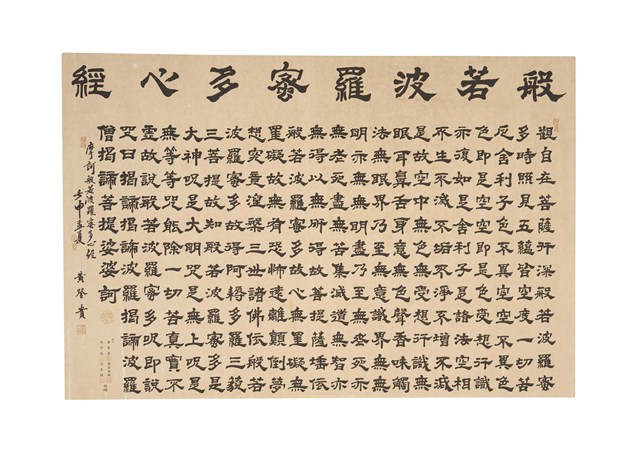 般若波羅蜜多心經
觀自在菩薩行深般若波羅蜜
多時照見五蘊皆空度一切苦
厄舍利子色不異空空不異色
色即是空空即是色受想行識
亦復如是舍利子是諸法空相
不生不滅不垢不淨不增不減
是故空中無色無受想行識無
眼耳鼻舌身意無色聲香味觸
法無眼界乃至無意識界無無
明亦無無明盡乃至無老死亦
無老死盡無苦集滅道無智亦
無得以無所得故菩提薩埵依
般若波羅蜜多故心無罣礙無
罣礙故無有恐怖遠離顛倒夢
想究竟涅槃三世諸佛依般若
波羅蜜多故得阿耨多羅三藐
三菩提故知般若波羅蜜多是
大神呪是大明呪是無上呪是
無等等呪能除一切苦真實不
虛故說般若波羅蜜多呪即說
呪曰揭諦揭諦波羅揭諦波羅
僧揭諦菩提娑婆訶
摩訶般若波羅蜜多心經
壬申孟夏 黃